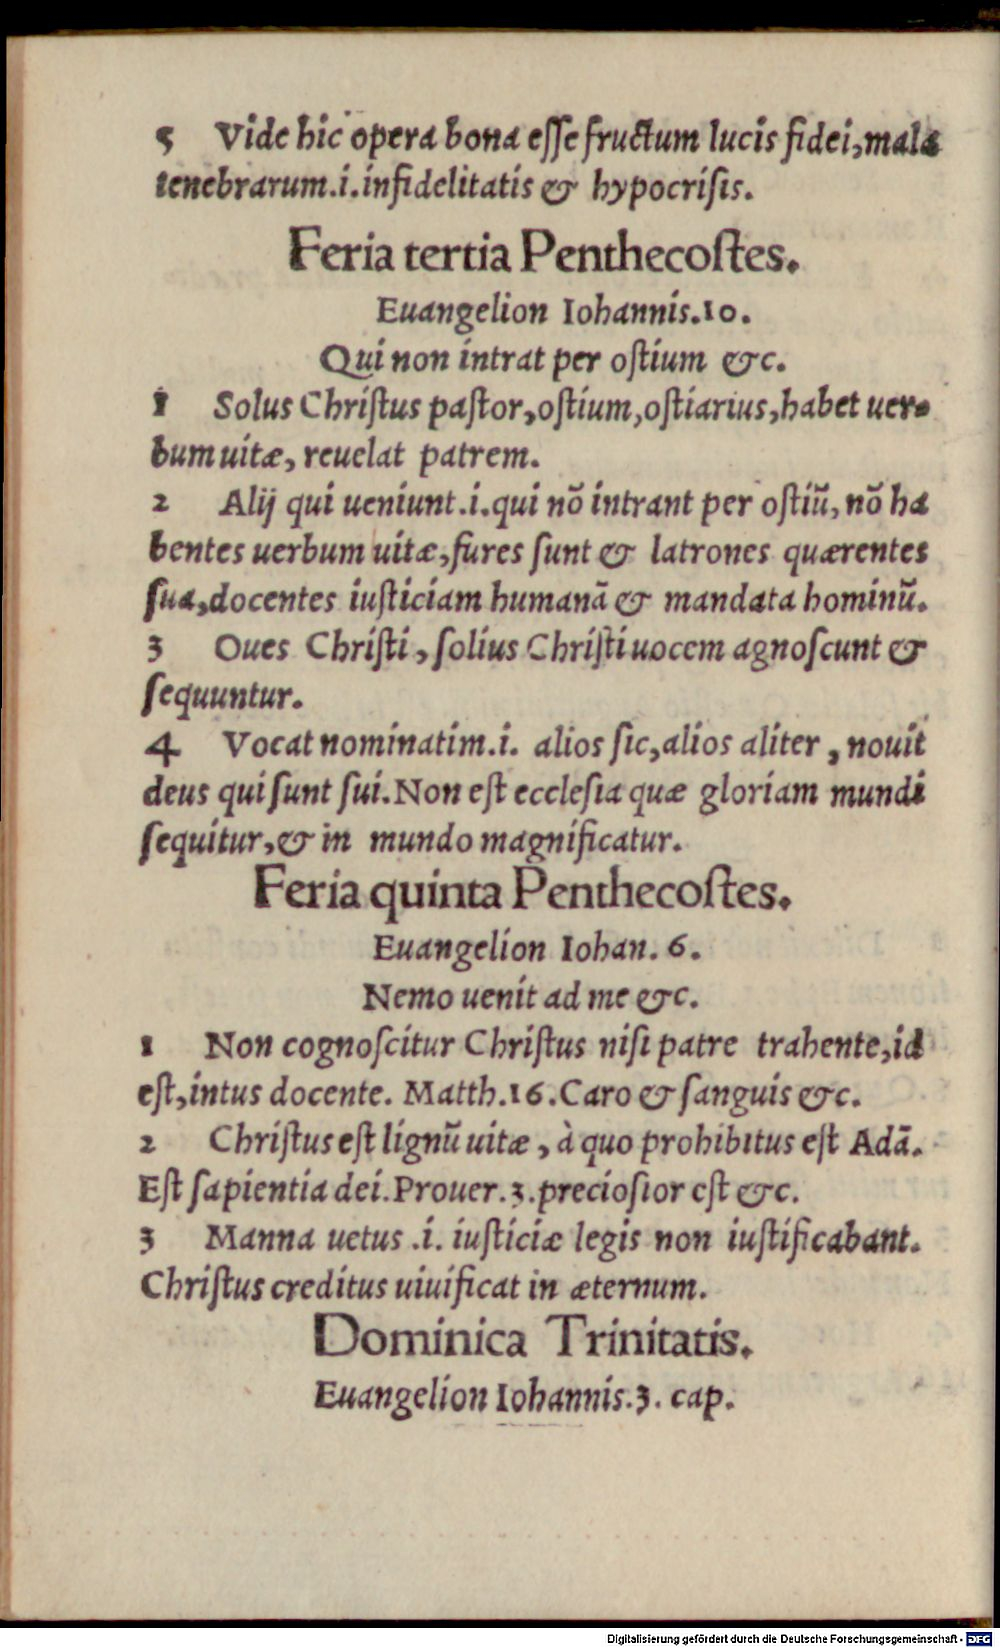 5 Vide hic opera bona eſſe fructum lucis fidei, mala
tenebrarum .i. infidelitatis & hypocriſis.
Feria tertia Penthecoſtes.
Euangelion Iohannis. 10.
Qui non intrat per oſtium &c.
1 Solus Chriſtus paſtor, oſtium, oſtiarius, habet uer-
bum uitæ, reuelat patrem.
2 Alij qui ueniunt .i. qui nõ intrant per oſtiũ, nõ ha
bentes uerbum uitæ, fures ſunt & latrones quærentes
ſua, docentes iuſticiam humanã & mandata hominũ.
3 Oues Chriſti, ſolius Chriſti uocem agnoſcunt &
ſequuntur.
4 Vocat nominatim .i. alios ſic, alios aliter, nouit
deus qui ſunt ſui. Non eſt eccleſia quæ gloriam mundi
ſequitur, & in mundo magnificatur.
Feria quinta Penthecoſtes.
Euangelion Iohan. 6.
Nemo uenit ad me &c.
1 Non cognoſcitur Chriſtus niſi patre trahente, id
eſt, intus docente. Matth. 16. Caro & ſanguis &c.
2 Chriſtus eſt lignũ uitæ, à quo prohibitus eſt Adã.
Eſt ſapientia dei. Prouer. 3. precioſior eſt &c.
3 Manna uetus .i. iuſticiæ legis non iuſtificabant.
Chriſtus creditus uiuificat in æternum.
Dominica Trinitatis.
Euangelion Iohannis. 3. cap.
Digitalisierung gefördert durch die Deutsche Forschungsgemeinschaft - DFG